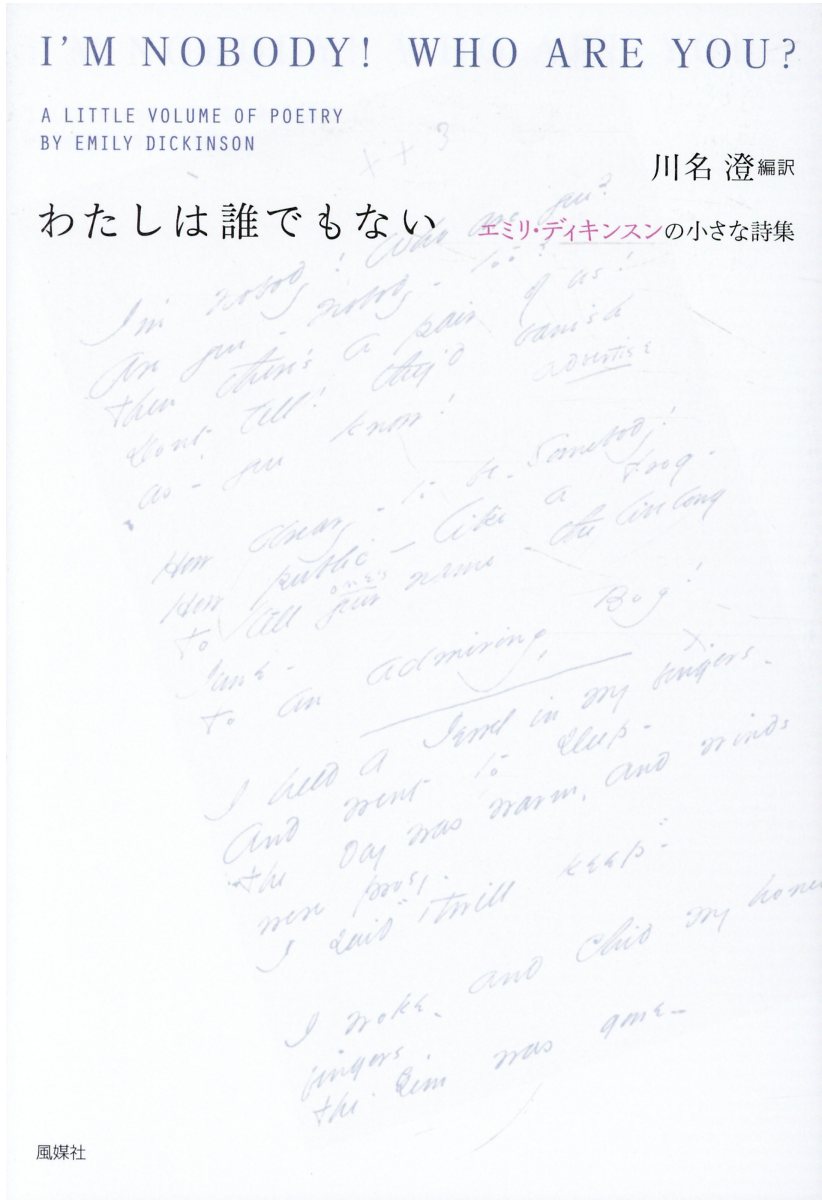 I'M NOBODY! WHO ARE YOU?
A LITTLE VOLUME OF POETRY
BY EMILY DICKINSON
川名 澄 編訳
わたしは誰でもない エミリ・ディキンスンの小さな詩集
+ + 3
I'm Nobody! Who are you?
Are you - Nobody - too?
Then there's a pair of us!
Dont tell! they'd banish
advertise
us - you know!
How dreary - to be - Somebody!
How public - like a Frog -
one's
To tell your name - the livelong
June -
To an admiring Bog!
I held a Jewel in my fingers -
And went to sleep -
The day was warm, and winds
were prosy -
I said "Twill keep"
I woke - and chid my honest
fingers,
The Gem was gone -
風媒社